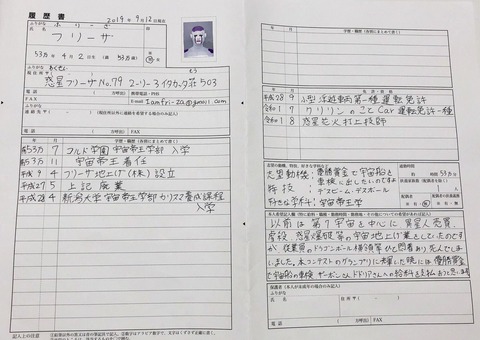 履歴書
2019年9月12日現在
ふりがな ふりーざ
氏名
フリーザ
53万年4月2日生（満53万歳）
男・女
ふりがな わくせい
そう
現住所 〒
惑星フリーザNo.79 2-リー3 イタカッタ荘503
電話（ ）方呼出 携帯電話・PHS（ ）
FAX E-mail Iamfri-za@gmail.com
ふりがな
連絡先 〒（現住所以外に連絡を希望する場合のみ記入）
電話（ ）方呼出
FAX
年 月 学歴・職歴（各別にまとめて書く）
前53万 7 コルド学園宇宙帝王学部 入学
前3万 11 宇宙帝王着任
平成9 4 フリーザ地上げ（株）設立
平成27 5 上記廃業
平成28 4 新潟大学宇宙帝王学部カリスマ養成課程
入学
記入上の注意
年 月 学歴・職歴（各別にまとめて書く）
年 月 免許・資格
平成28 9 小型浮遊車両第一種運転免許
令和1 7 クリリンのことCar運転免許一種
令和1 8 惑星花火打上技師
志望の動機、特技、好きな学科など
志望動機：優勝賞金で宇宙船を
車検に出したいのですよ
特技：デスビーム・デスボール
好きな学科：宇宙帝王学
通勤時間
約 53万時間 分
扶養家族数（配偶者を除く）
配偶者
有・無
配偶者の扶養義務
有・無
以前は第7宇宙を中心に異星人売買、
虐殺、惑星爆破等の宇宙地上げ業をしていたのですが
従業員のドラゴンボール横領等ひと悶着あり死んでしま
いました。本コンテストのグランプリに輝いた暁には優勝賞金
で宇宙船の車検、ザーボンさん、ドドリアさんへの給料を支払おうと思います
保護者（本人が未成年の場合のみ記入）
ふりがな
氏名
住所 〒
電話（ ）方呼出
FAX